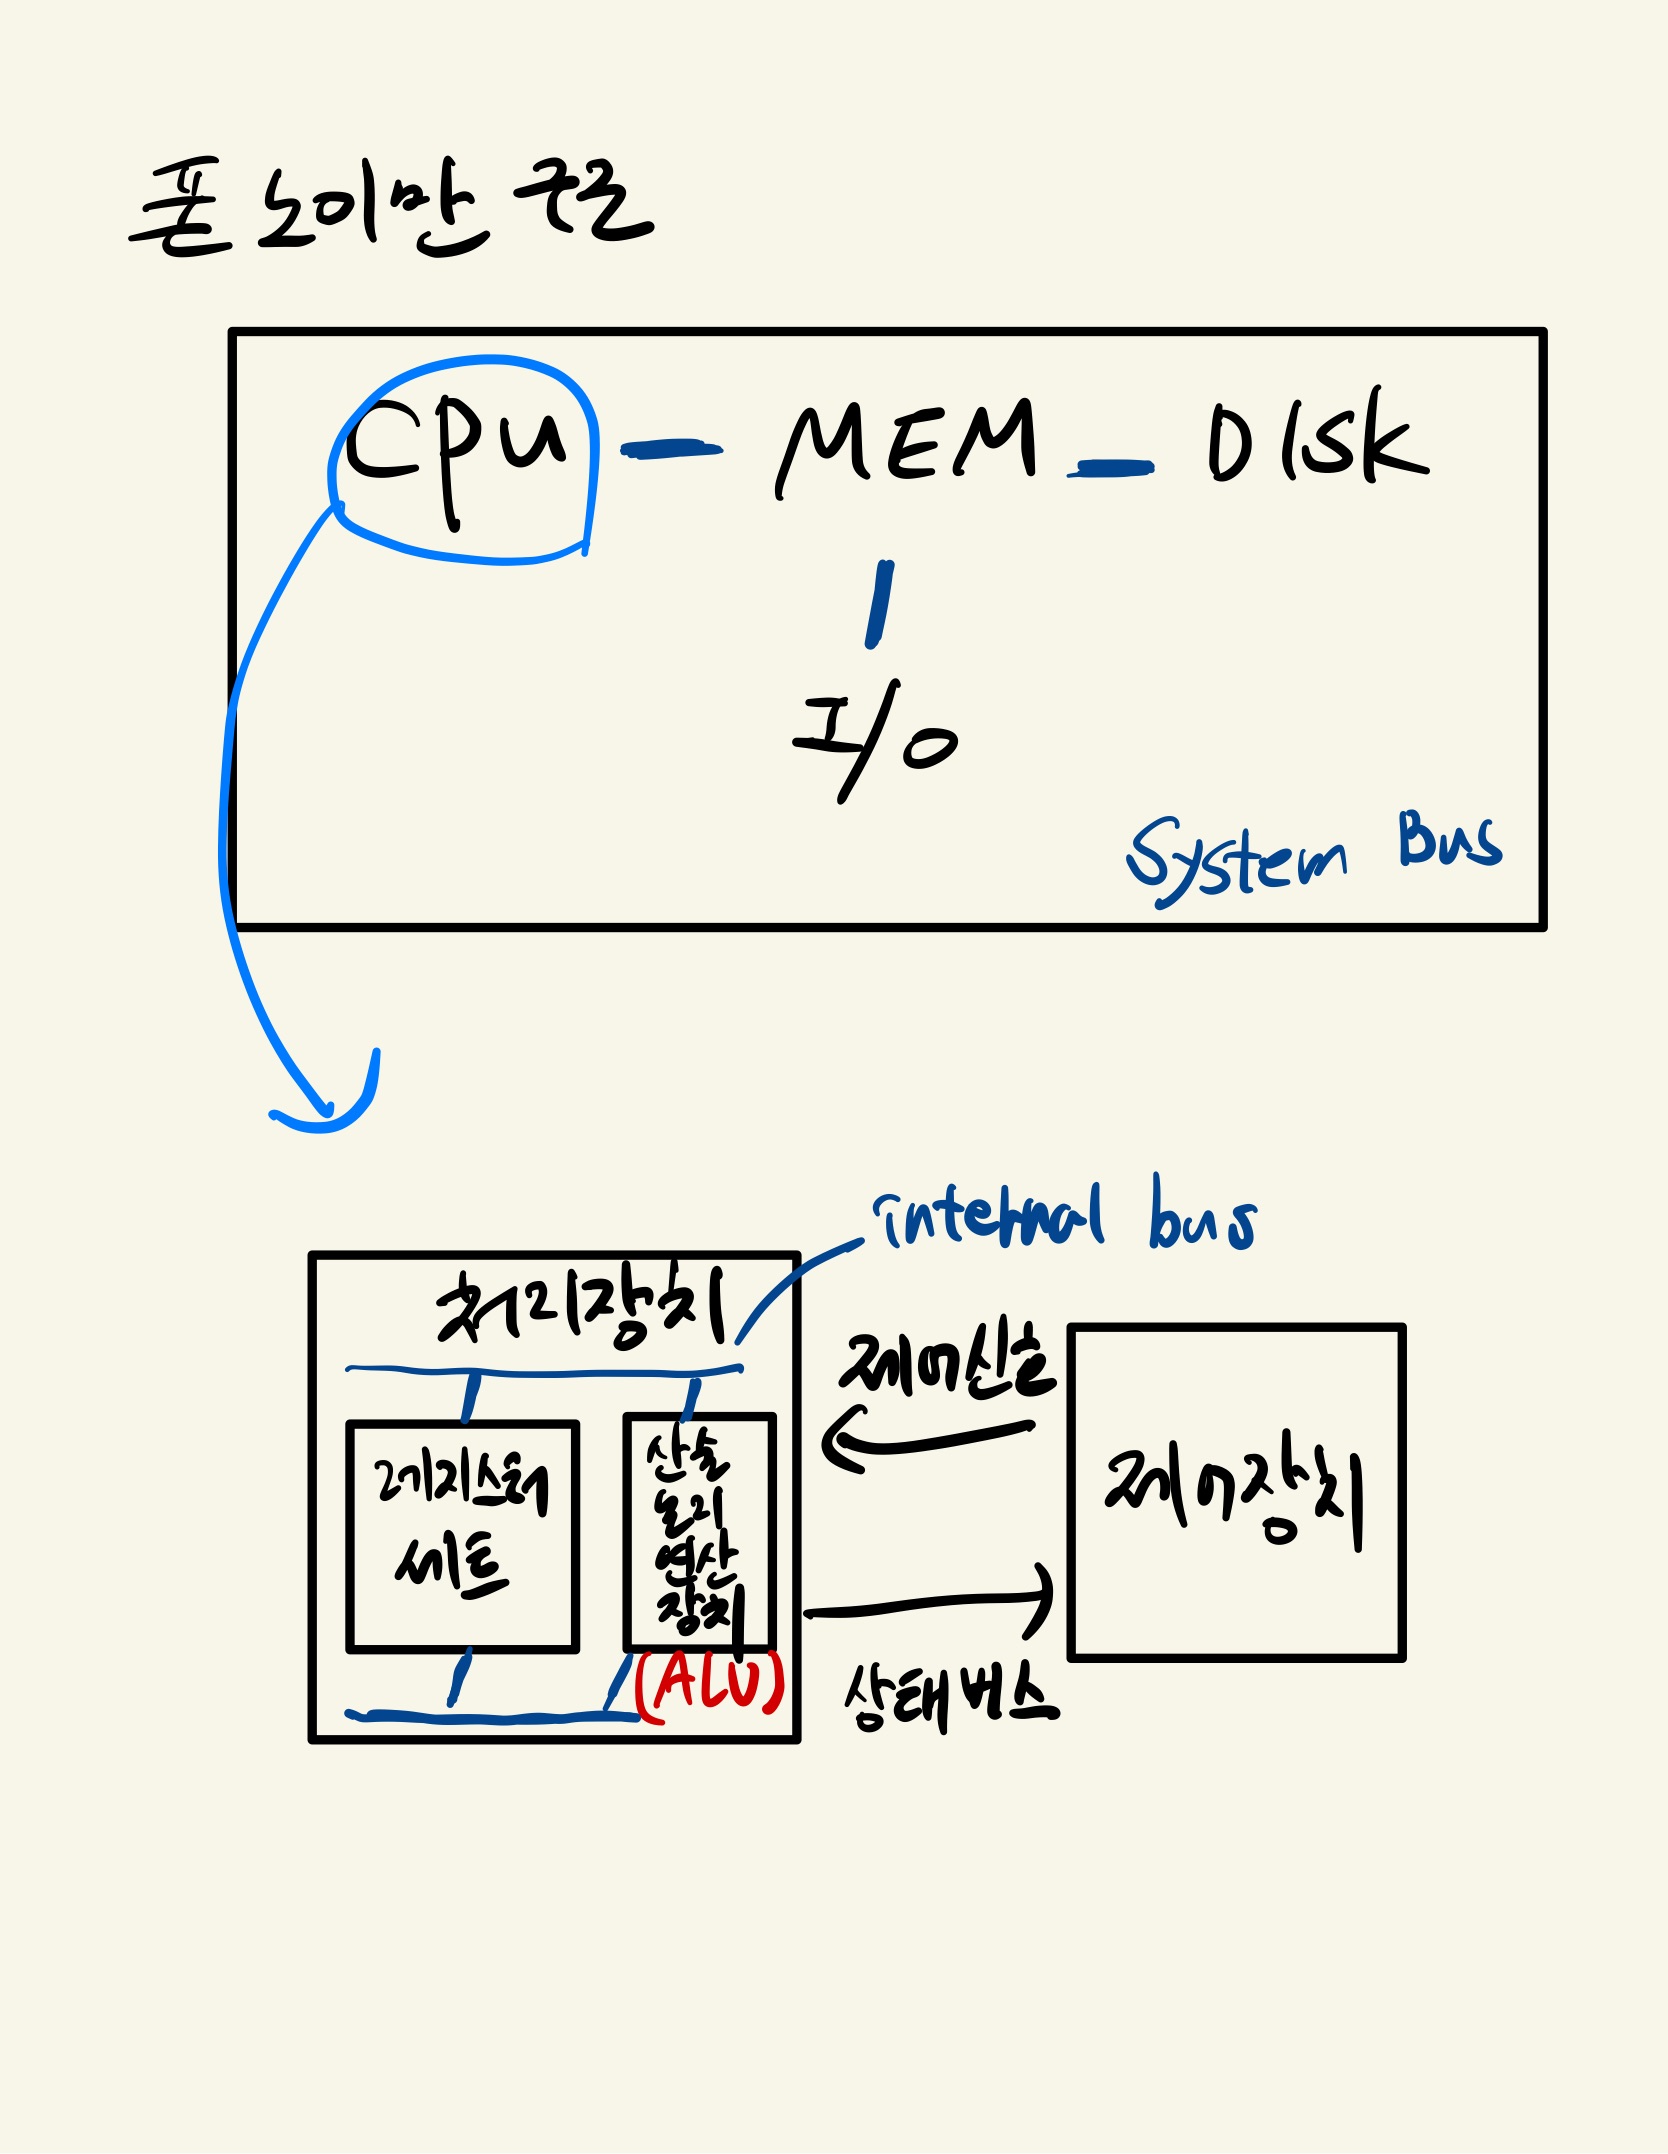 폰 노이만 구조
CPU MEM DISK
I/O
System Bus
internal bus
처리장치
제어신호
레지스터
세트
산술
논리
연산
장치
(ALU)
제어장치
상태버스